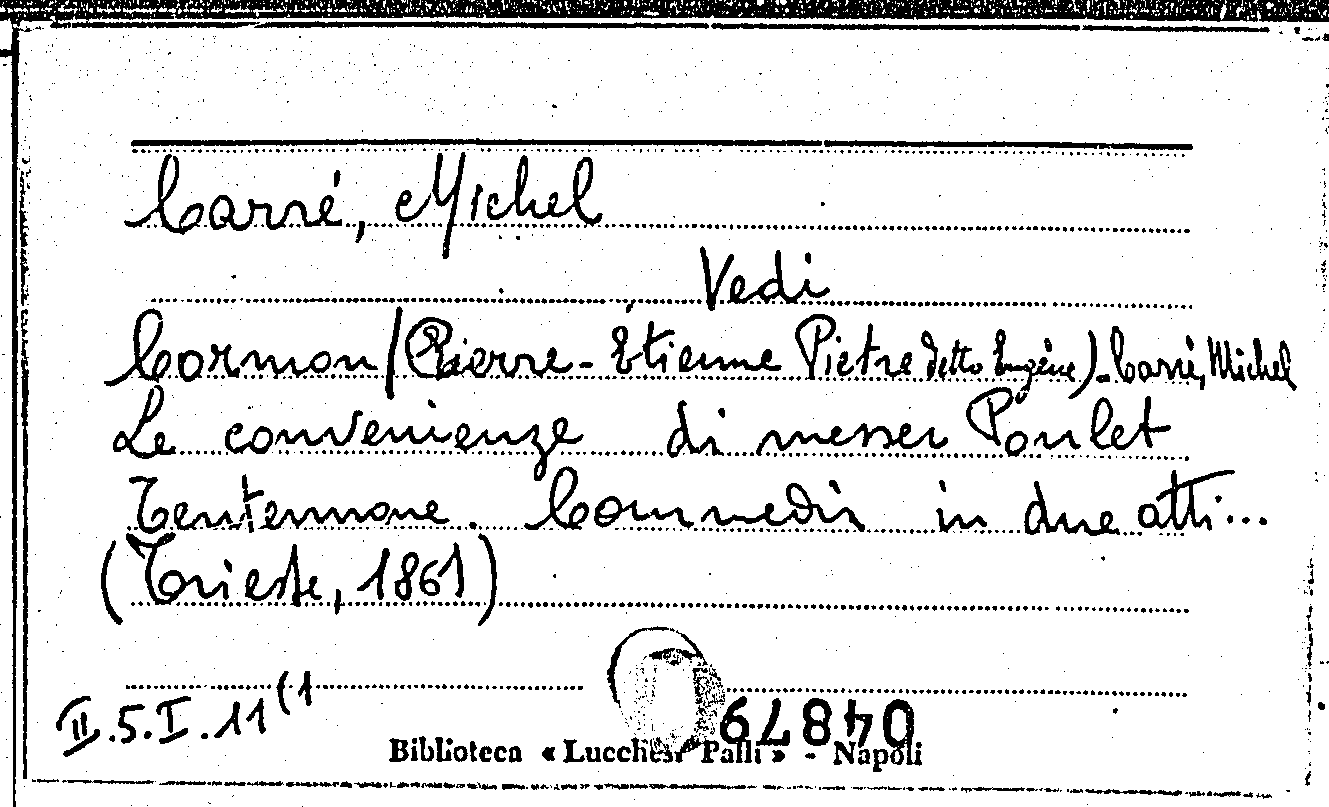 Carré, Michel
Vedi
Cormon (Pierre-Etienne Pietre detto Eugène)-Carré, Michel
Le convenienze di messer Poulet
Tentennone. Commedia in due atti...
(Trieste, 1861)
II.5.I.11(1
048479
Biblioteca « Lucchesi Palli » - Napoli